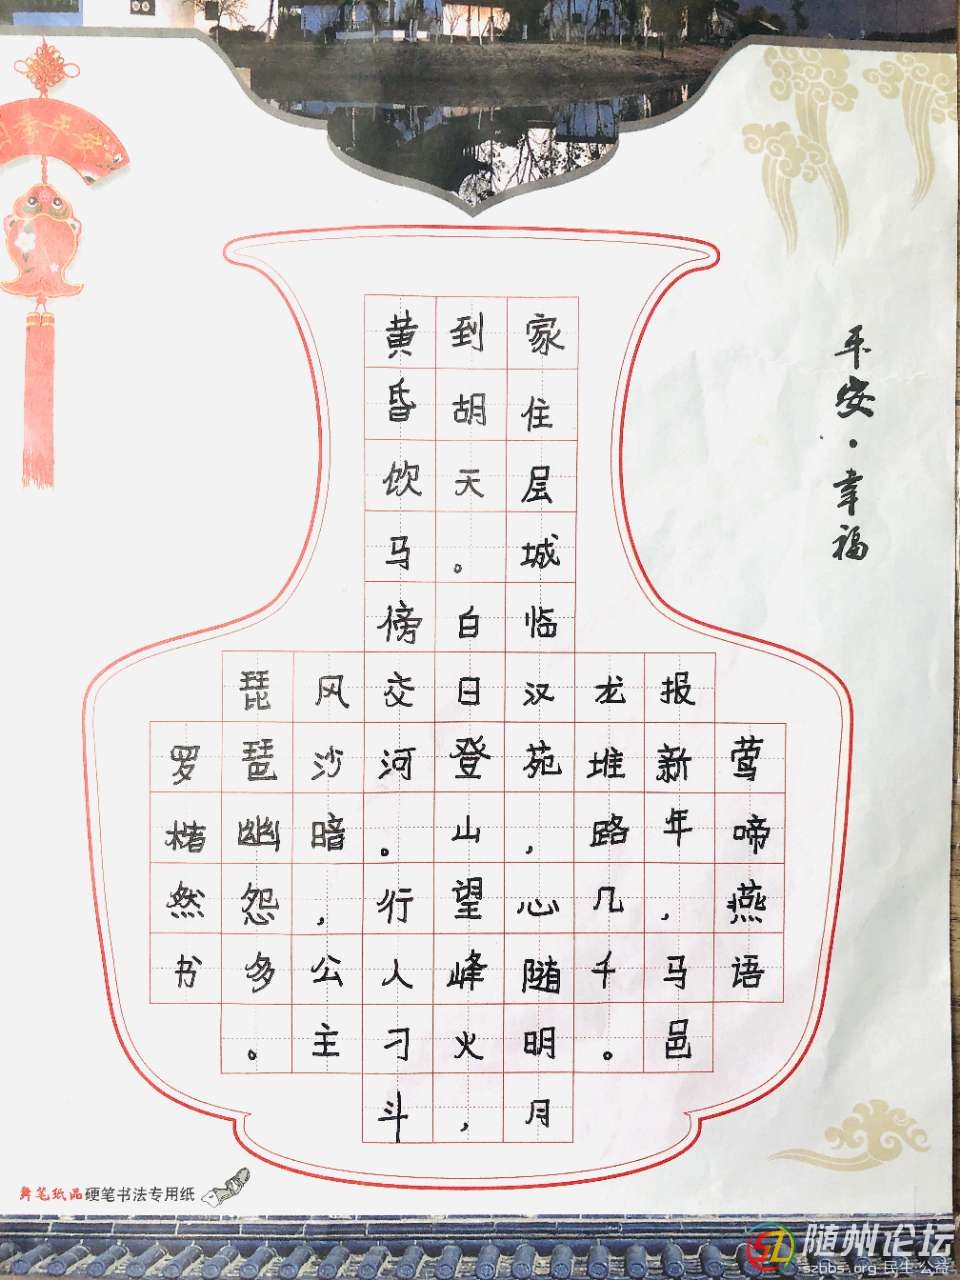 平安·幸福
季平安
莺啼燕语
报新年,马邑
龙堆路几千。
家住层城临汉苑,心随明月
到胡天。白日登山望峰火,
黄昏饮马傍交河。行人刁斗
风沙暗,公主
琵琶幽怨多。
罗楮然书
笔纸品硬笔书法专用纸
随州论坛
szbbs.org 民生公益